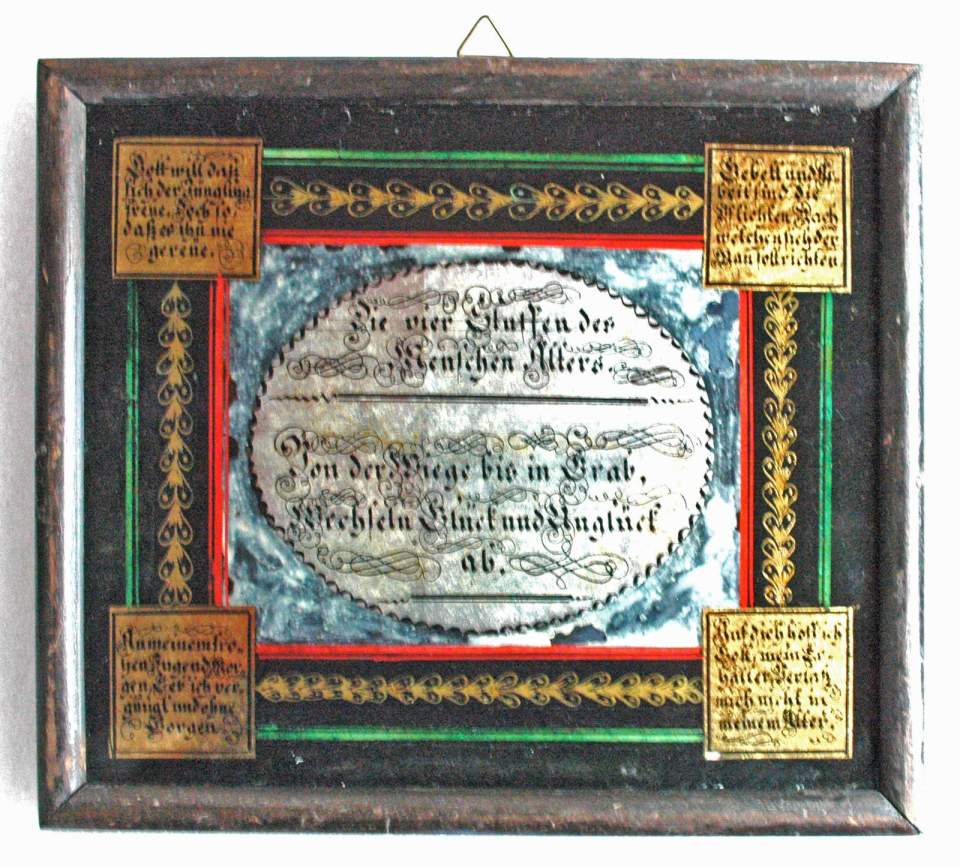 Gott will daß
sich der Jüngling
freue. Doch so
daß es ihn nie
gereüe.
Gebett und Ar
beit sind die
Pflichten Nach
welchen sich der
Man soll richten
Die vier Stuffen des
Menschen Alters.
Von der Wiege bis in Grab,
Wechseln Glück und Unglück
ab.
An meinem fro,
hen Jugend Mor,
gen, Leb ich ver,
gnügt und ohne
Sorgen.
Auf dich hoff ich
Gott, mein Er,
halter Verlaß
mich nicht in
meinem Alter